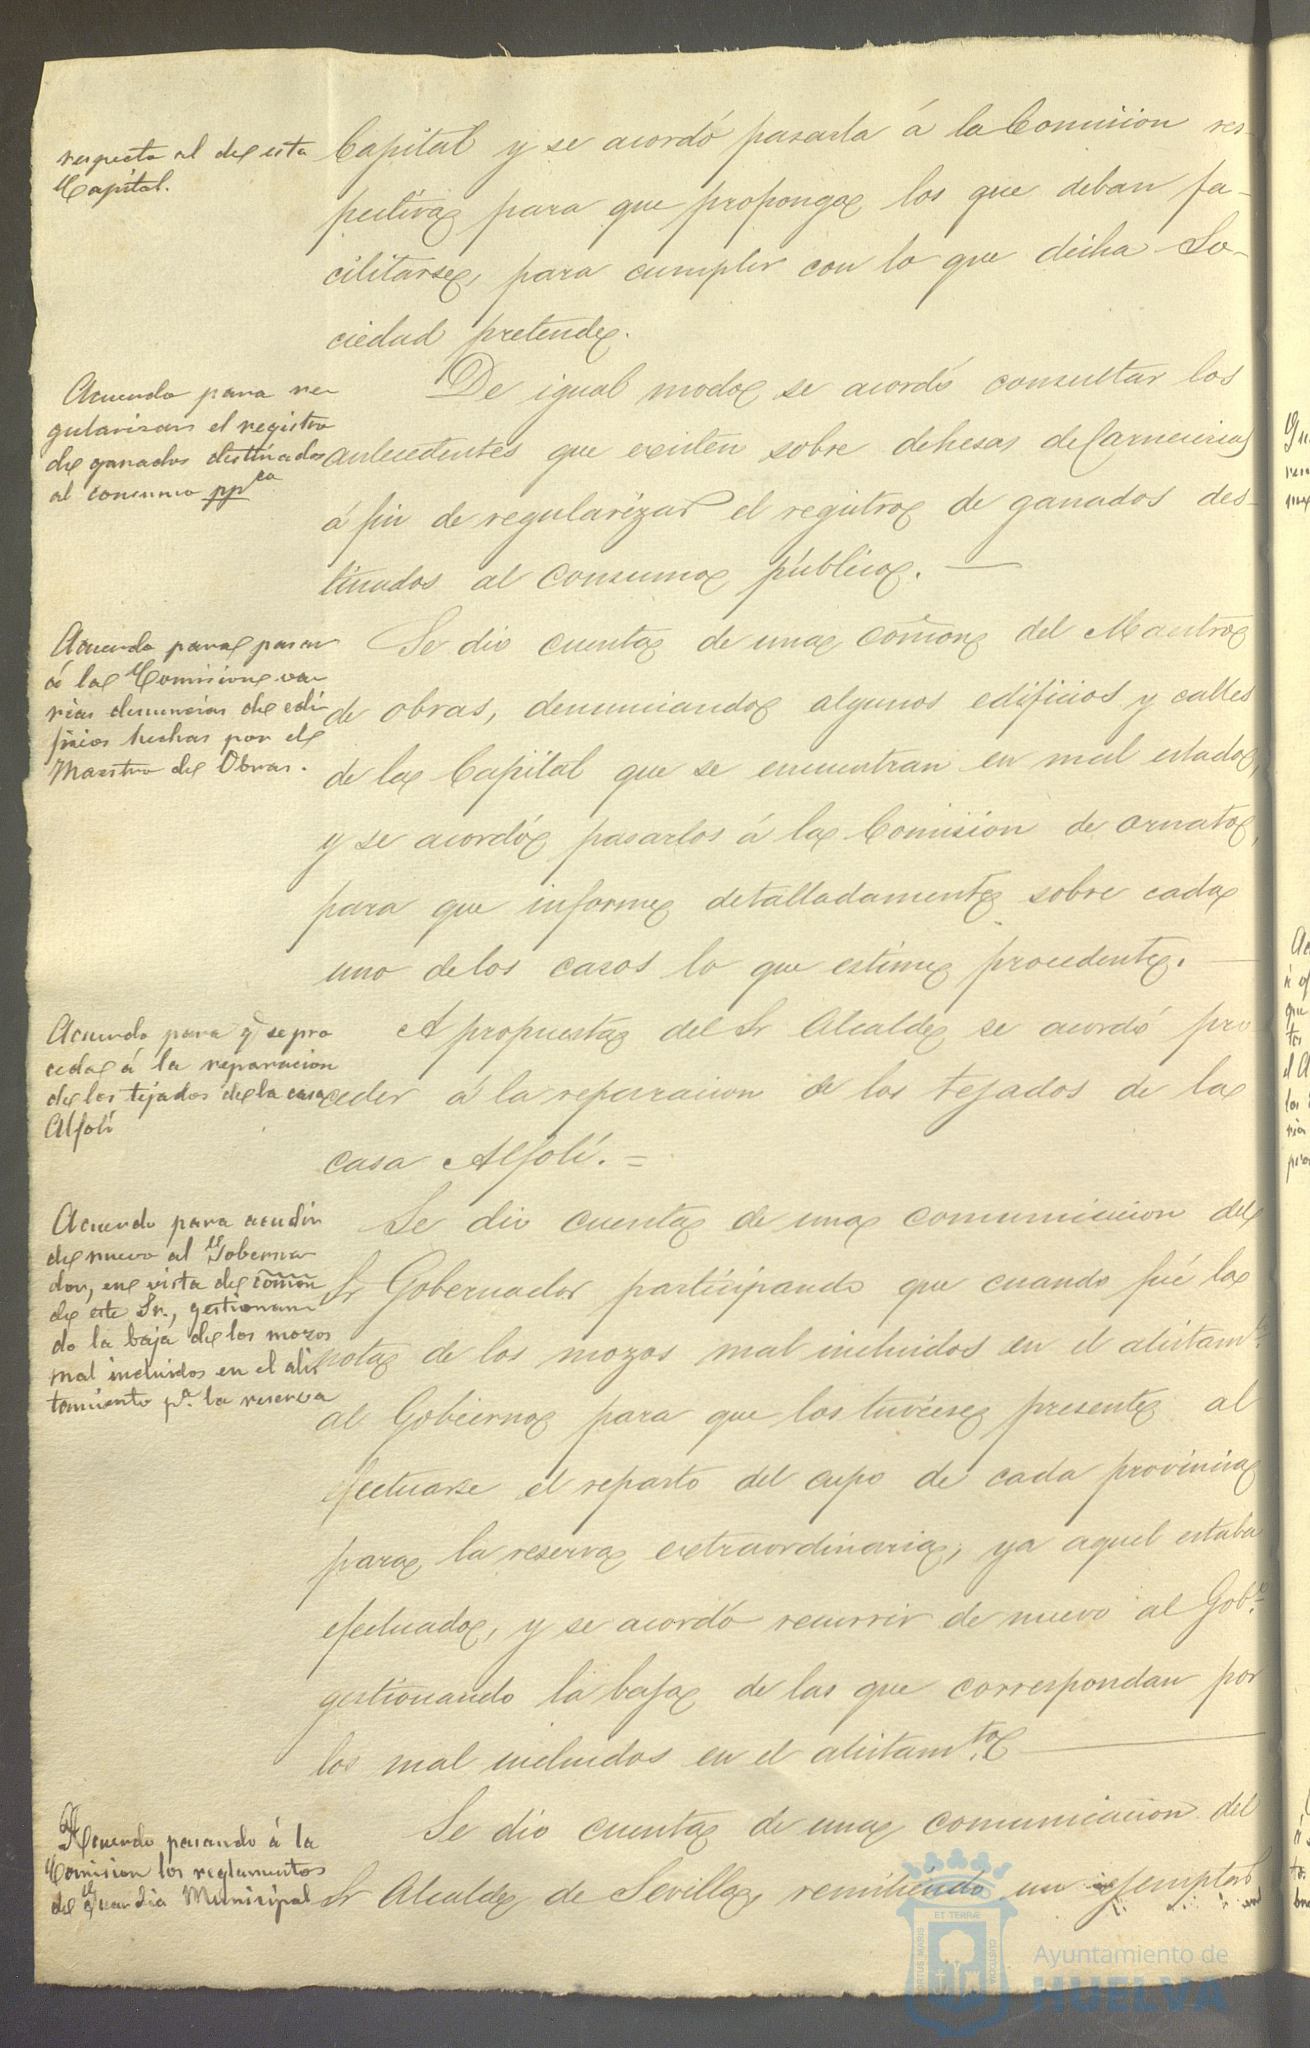 respecto al de esta
Capital.
Capital y se acordó pasarla á la Comision res-
pectiva para que proponga los que deban fa-
cilitarse, para cumplir con lo que dicha So-
ciedad pretende.
Acuerdo para re
gularizar el registro
de ganados destinados
al consumo ppco
De igual modo se acordó consultar los
antecedentes que existen sobre dehesas de Carnecerias
á fin de regularizar el registro de ganados des-
tinados al consumo público.
Acuerdo para pasar
á la Comision va
rias denuncias de edi
ficios hechas por el
Maestro de Obras.
Se dio cuenta de una comon del Maestro
de obras, denunciando algunos edificios y calles
de la Capital que se encuentran en mal estado,
y se acordó pasarlos á la Comision de ornato,
para que informe detalladamente sobre cada
uno de los casos lo que estime procedente.
Acuerdo para q se pro
ceda á la reparacion
de los tejados de la casa
Alfolí
A propuesta del Sr Alcalde se acordó pro
ceder á la reparacion de los tejados de la
casa Alfolí. =
Acuerdo para acudir
de nuevo al Goberna
dor, en vista de comon
de este Sr., gestionan
do la baja de los mozos
mal incluidos en el alis
tamiento pa. la reserva
Se dio cuenta de una comunicacion del
Sr Gobernador participando que cuando fué la
nota de los mozos mal incluidos en el alistamto
al Gobierno para que los tuviese presente al
efectuarse el reparto del cupo de cada provincia
para la reserva extraordinaria, ya aquel estaba
efectuado, y se acordó recurrir de nuevo al Gobo.
gestionando la baja de las que correspondan por
los mal incluidos en el alistamto.
Acuerdo pasando á la
Comision los reglamentos
de Guardia Municipal
Se dio cuenta de una comunicacion del
Sr Alcalde de Sevilla, remitiendo un ejemplar
PORTUS MARIS
ET TERRÆ
CUSTODIA
Ayuntamiento de
HUELVA